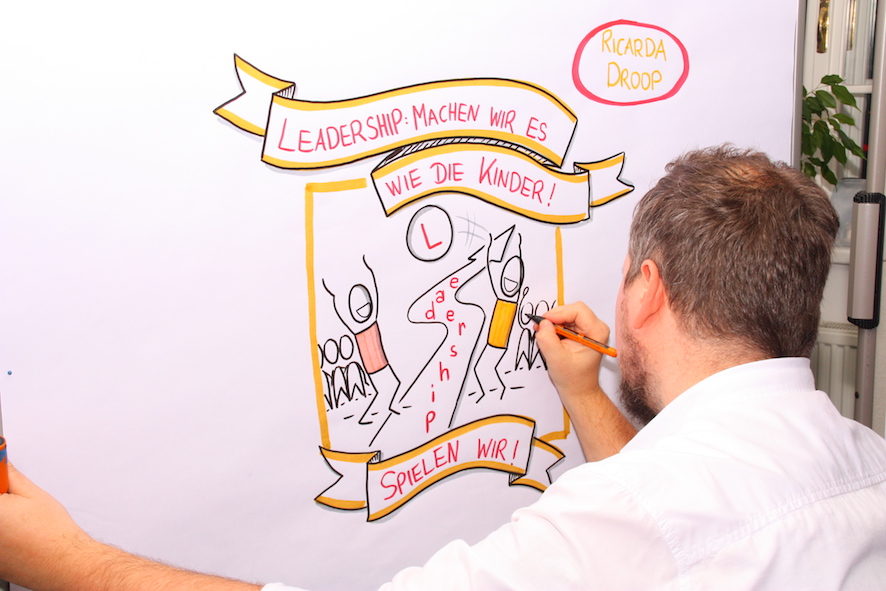 RICARDA
DROOP
LEADERSHIP: MACHEN WIR ES
WIE DIE KINDER!
L
eadership
SPIELEN WIR!